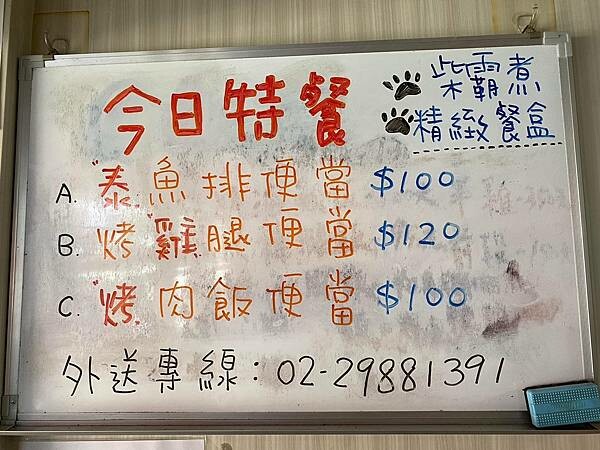 今日特餐
柴霸煮
精緻餐盒
A. "泰"魚排便當 $100
B. 烤"雞"腿便當 $120
C. "烤"肉飯便當 $100
外送專線：02-29881391